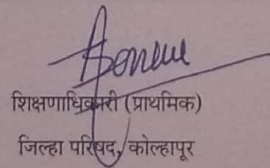 शिक्षणाधिकारी (प्राथमिक)
जिल्हा परिषद, कोल्हापूर